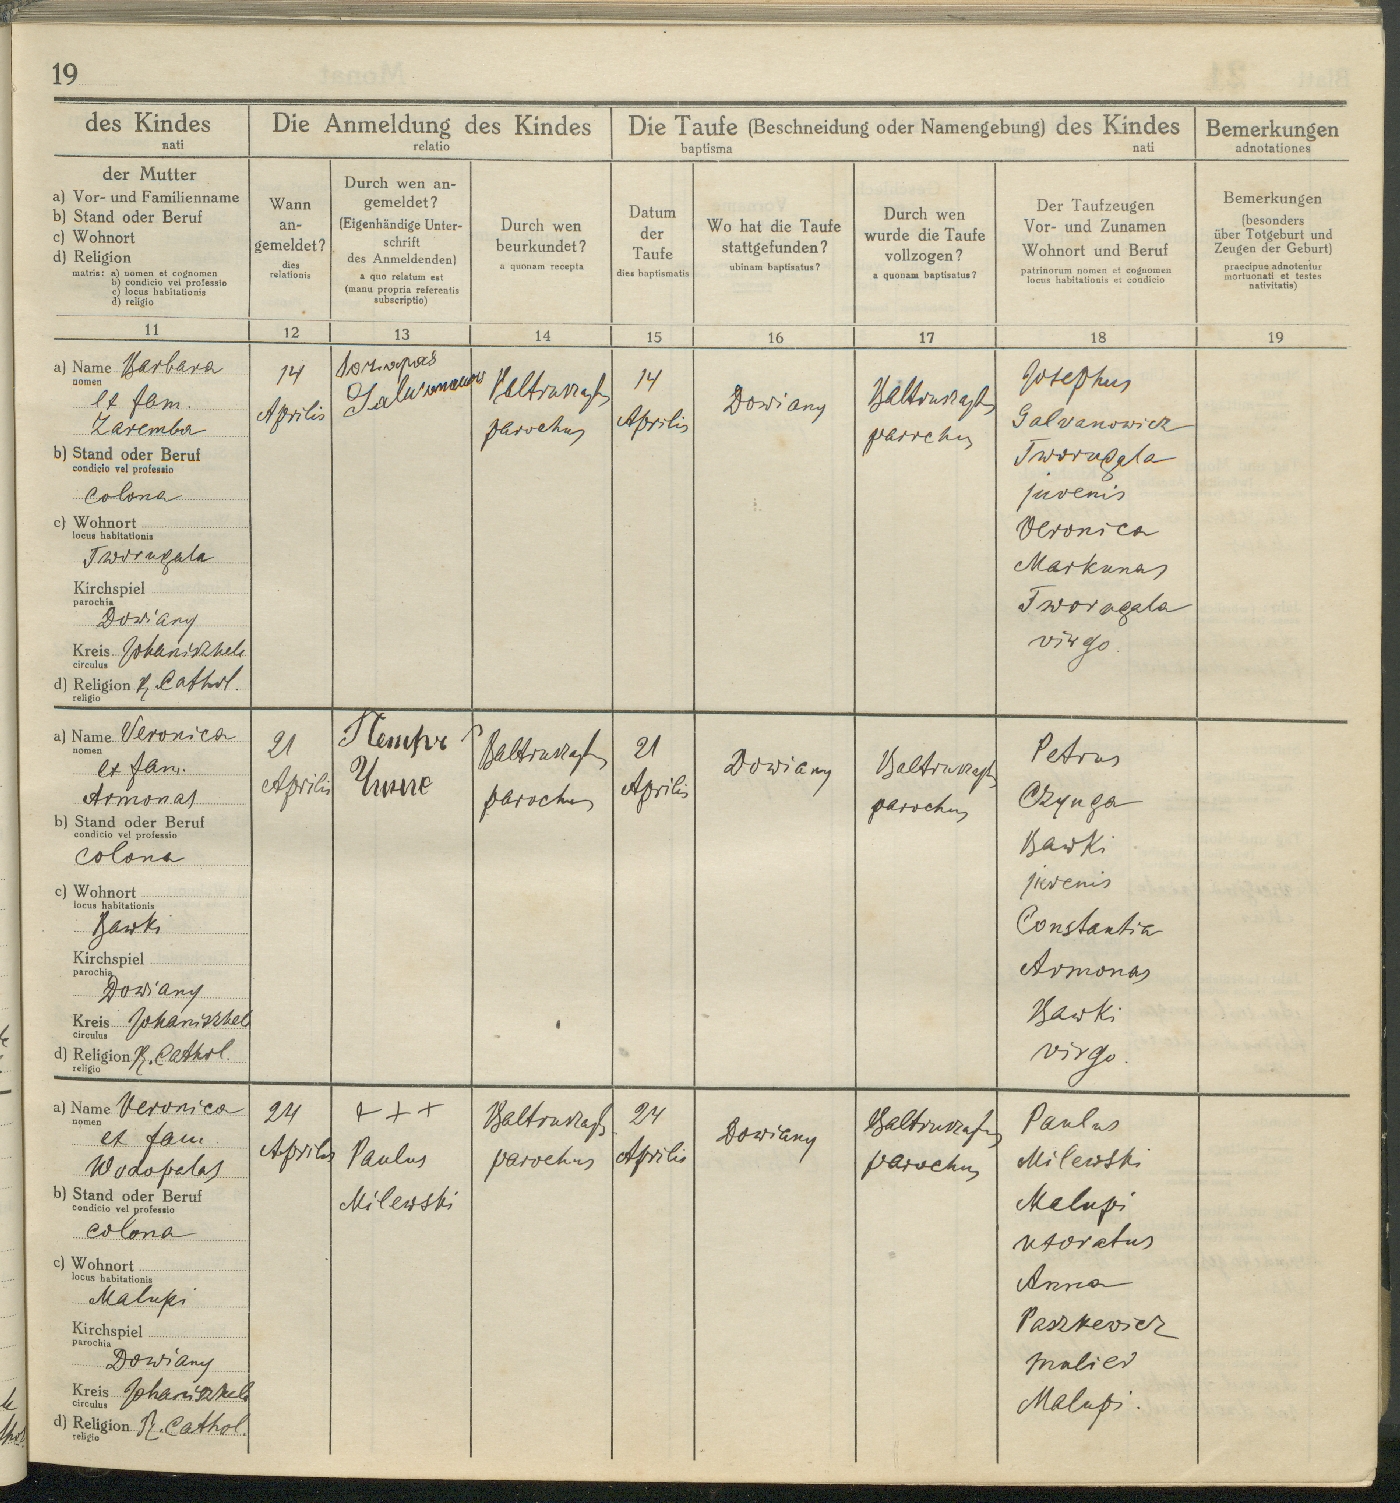 19
des Kindes
nati
Die Anmeldung des Kindes
relatio
Die Taufe (Beschneidung oder Namengebung) des Kindes
baptisma nati
Bemerkungen
adnotationes
der Mutter
a) Vor- und Familienname
b) Stand oder Beruf
c) Wohnort
d) Religion
matris: a) nomen et cognomen
b) condicio vel professio
c) locus habitationis
d) religio
Wann
an-
gemeldet?
dies
relationis
Durch wen an-
gemeldet?
(Eigenhändige Unter-
schrift
des Anmeldenden)
a quo relatum est
(manu propria referentis
subscriptio)
Durch wen
beurkundet?
a quonam recepta
Datum
der
Taufe
dies baptismatis
Wo hat die Taufe
stattgefunden?
ubinam baptisatus?
Durch wen
wurde die Taufe
vollzogen?
a quonam baptisatus?
Der Taufzeugen
Vor- und Zunamen
Wohnort und Beruf
patrinorum nomen et cognomen
locus habitationis et condicio
Bemerkungen
(besonders
über Totgeburt und
Zeugen der Geburt)
praecipue adnotentur
mortuonati et testes
nativitatis)
11 12 13 14 15 16 17 18 19
a) Name Barbara
nomen
ex fam.
Zaremba
b) Stand oder Beruf
condicio vel professio
colona
c) Wohnort
locus habitationis
Tworugala
Kirchspiel
parochia
Dowiany
Kreis Johaniszkele
circulus
d) Religion R. Cathol.
religio
14
Aprilis
Baltruszajtys
parochus
14
Aprilis
Dowiany
Baltruszajtys
parochus
Josephus
Galvanowicz
Tworugala
juvenis
Veronica
Markunas
Tworugala
virgo.
a) Name Veronica
nomen
ex fam.
Armonas
b) Stand oder Beruf
condicio vel professio
colona
c) Wohnort
locus habitationis
Bawki
Kirchspiel
parochia
Dowiany
Kreis Johaniszkele
circulus
d) Religion R. Cathol.
religio
21
Aprilis
Baltruszajtys
parochus
21
Aprilis
Dowiany
Baltruszajtys
parochus
Petrus
Czynga
Bawki
juvenis
Constantia
Armonas
Bawki
virgo.
a) Name Veronica
nomen
ex fam.
Wodopalas
b) Stand oder Beruf
condicio vel professio
colona
c) Wohnort
locus habitationis
Malupi
Kirchspiel
parochia
Dowiany
Kreis Johaniszkele
circulus
d) Religion R. Cathol.
religio
24
Aprilis
+ + +
Paulus
Milewski
Baltruszajtys
parochus
24
Aprilis
Dowiany
Baltruszajtys
parochus
Paulus
Milewski
Malupi
uxoratus
Anna
Paszkewicz
mulier
Malupi.